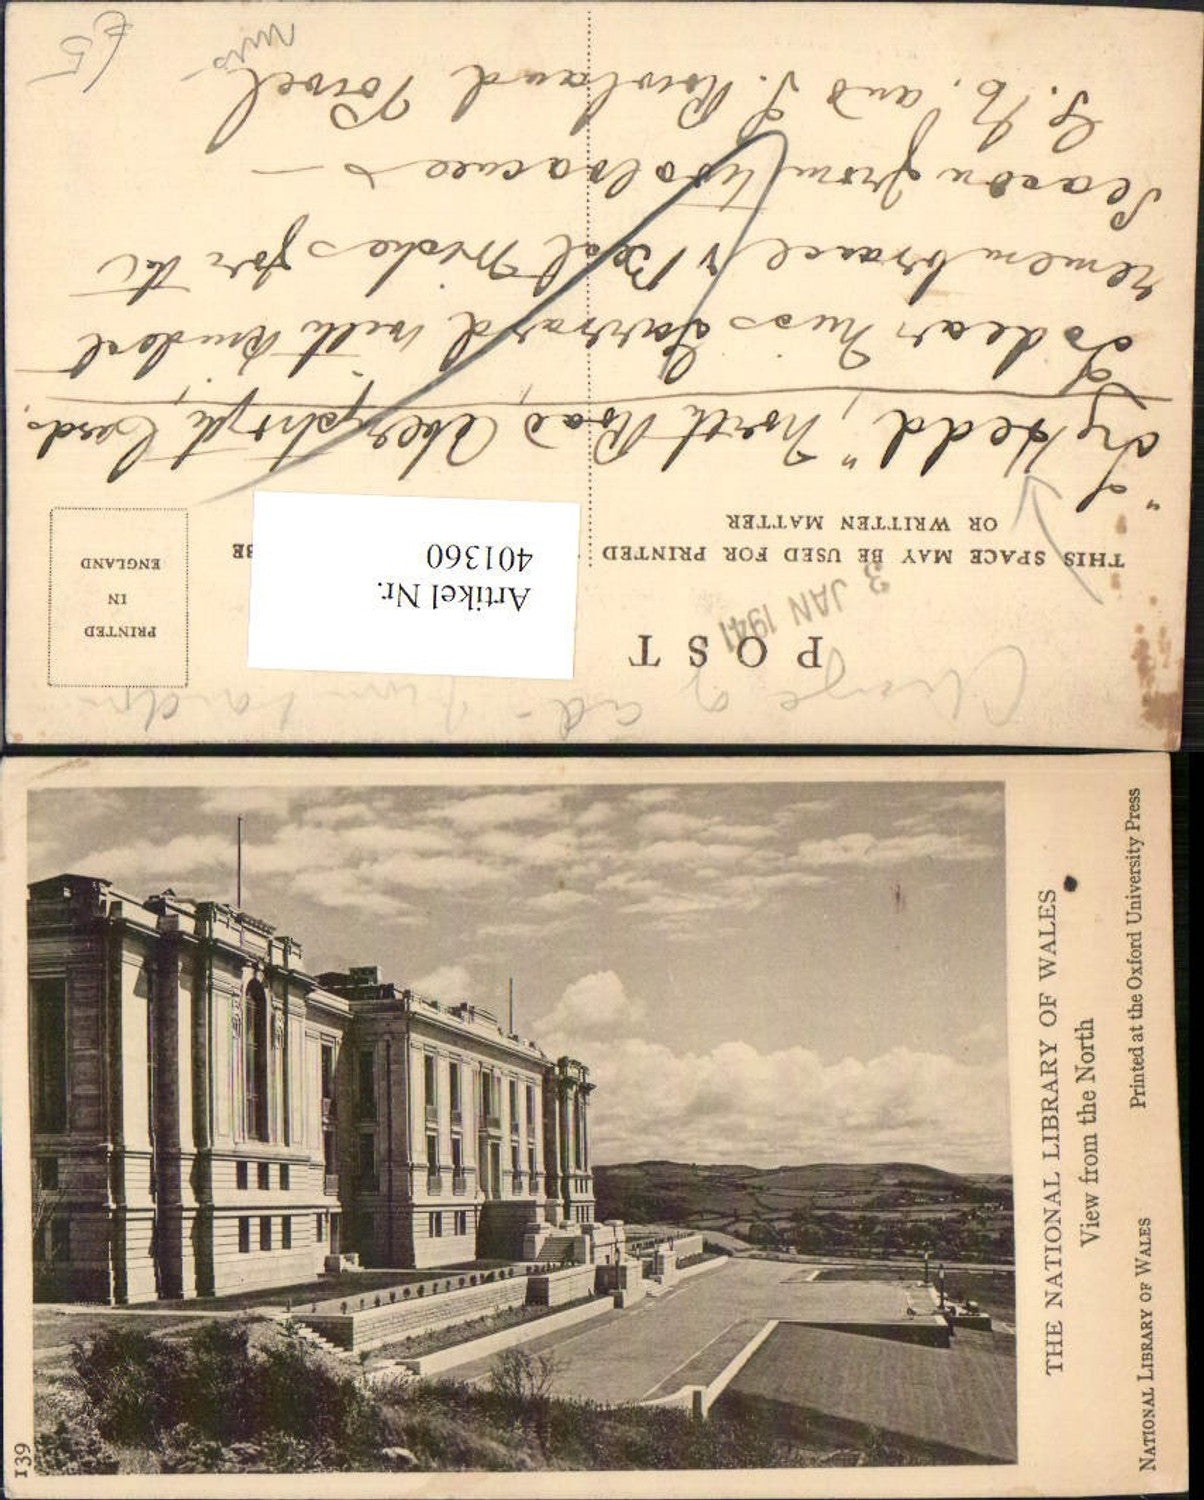 Change of ad-
POST
3 JAN 1941
THIS SPACE MAY BE USED FOR PRINTED
OR WRITTEN MATTER
BE
PRINTED
IN
ENGLAND
Artikel Nr.
401360
North Road Aberystwyth, Cards.
To dear Miss Garrard with kindest
remembrances & Best Wishes for the
Season from
G. and Rowland Powel
Miss
£5
139
THE NATIONAL LIBRARY OF WALES
View from the North
NATIONAL LIBRARY OF WALES Printed at the Oxford University Press